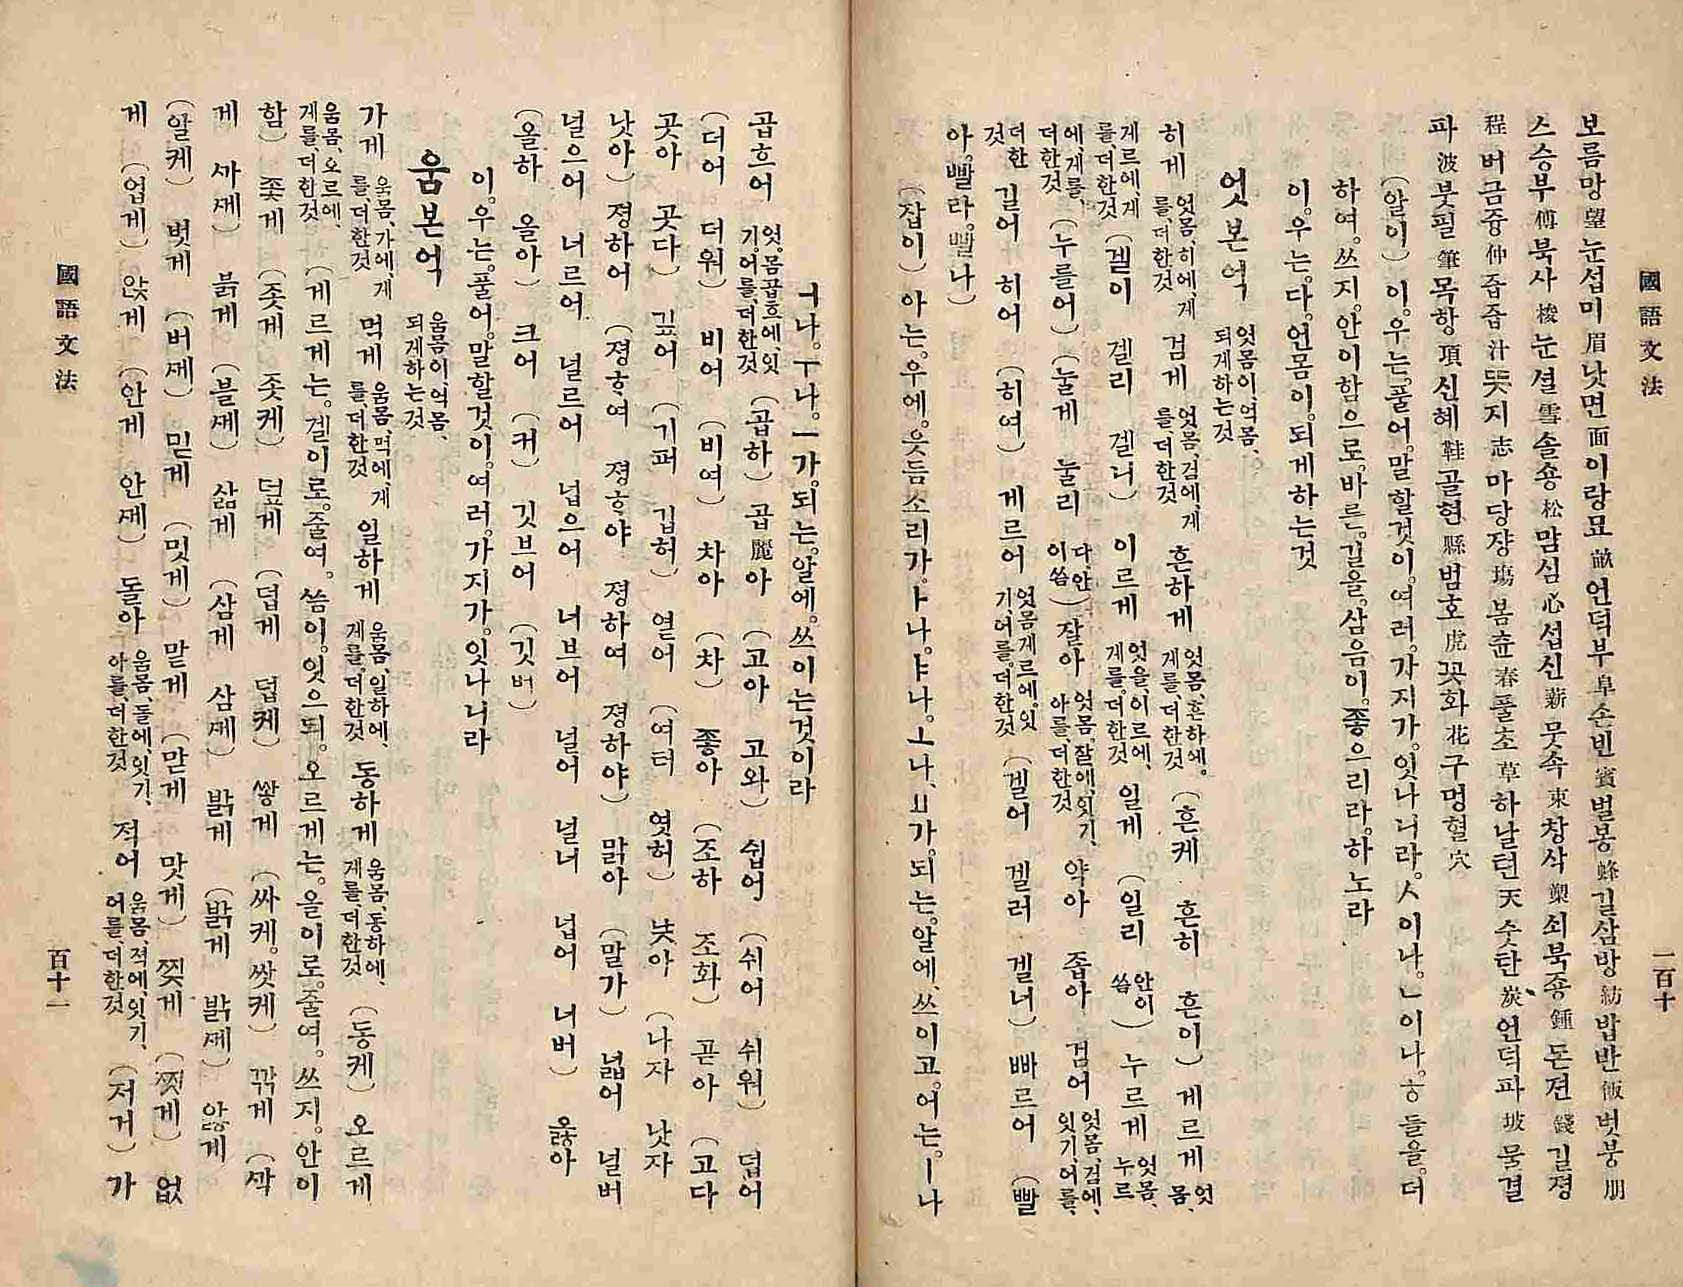 國語文法
一百十
보름망 望 눈섭미 眉 낫면 面 이랑묘 畝 언덕부 阜 손빈 賓 벌봉 蜂 길삼방 紡 밥반 飯 벗붕 朋
스승부 傅 북사 梭 눈셜 雪 솔숑 松 맘심 心 섭신 薪 뭇속 束 창삭 槊 쇠북죵 鍾 돈젼 錢 길졍
程 버금즁 仲 즙즙 汁 뜻지 志 마당쟝 場 봄츈 春 풀초 草 하날텬 天 숫탄 炭 언덕파 坡 물결
파 波 붓필 筆 목항 項 신혜 鞋 골현 縣 범호 虎 꼿화 花 구멍혈 穴
(알이) 이。우는。풀어。말할것이。여러。가지가。잇나니라。ㅅ이나。ㄴ이나。ㅎ들을。더
하여。쓰지。안이함으로。바른。길을。삼음이。좋으리라。하노라
이。우는。다。언몸이。되게하는것
엇본억 엇몸이、억몸、되게하는것
히게 엇몸、히에、게를、더한것 검게 엇몸、검에、게를、더한것 흔하게 엇몸、흔하에。게를、더한것 (흔케 흔히 흔이) 게르게 엇몸、
게르에、게를、더한것 (겔이 겔리 겔니) 이르게 엇을、이르에、게를。더한것 일게 (일리 안이씀) 누르게 엇몸、누르
에、게를、더한것 (누를어) (눌게 눌리 다、안이씀) 잘아 엇몸。잘에、잇기、아를、더한것 약아 좁아 검어 엇몸、검에、잇기、어를、
더한것 길어 히어 (히여) 게르어 엇몸게르에、잇기、어를。더한것 (겔어 겔러 겔너) 빠르어 (빨
아。빨라。빨나)
(잡이) 아는。우에。읏듬소리가。ㅏ나。ㅑ나。ㅗ나、ㅛ가。되는。알에、쓰이고。어는。ㅣ나
ㅓ나。ㅜ나。ㅡ가。되는。알에。쓰이는것이라
곱흐어 엇。몸곱흐에、잇기。어를、더한것 (곱하) 곱아 (고아 고와) 쉽어 (쉬어 쉬워) 덥어
(더어 더워) 비어 (비여) 차아 (차) 좋아 (조하 조화) 곧아 (고다
곳아 곳다) 깊어 (기퍼 깁허) 옅어 (여터 엿허) 낮아 (나자 낫자
낫아) 졍하어 (졍ㅎ여 졍ㅎ야 졍하여 졍하야) 맑아 (말가) 넓어 널버
널으어 너르어 널르어 넙으어 너브어 널어 널너 넙어 너버) 옳아
(올하 올아) 크어 (커) 깃브어 (깃버)
이。우는。풀어。말할것이。여러。가지가。잇나니라
움본억 움몸이、억몸、되게하는것
가게 움몸、가에、게를、더한것 먹게 움몸、먹에、게를、더한것 일하게 움몸、일하에、게를。더한것 동하게 움몸、동하에、게를、더한것 (동케) 오르게
움몸、오르에、게를、더한것 (게르게는。겔이로。줄여。씀이。잇으되。오르게는。올이로。줄여。쓰지。안이
함) 좇게 (좃게 좃케) 덮게 (덥게 덥케) 쌓게 (싸케。쌋케) 깎게 (깍
게 까께) 붉게 (블께) 삶게 (삼게 삼께) 밝게 (밝게 밝께) 앓게
(알케) 벗게 (버께) 믿게 (밋게) 맡게 (맏게 맛게) 찢게 (찟게) 없
게 (업게) 앉게 (안게 안께) 돌아 움몸、돌에、잇기、아를、더한것 적어 움몸、적에、잇기、어를、더한것 (저거) 가
國語文法
百十一